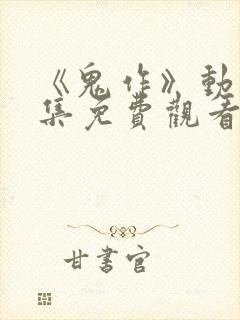 《鬼作》動
集免費觀看
甘書官